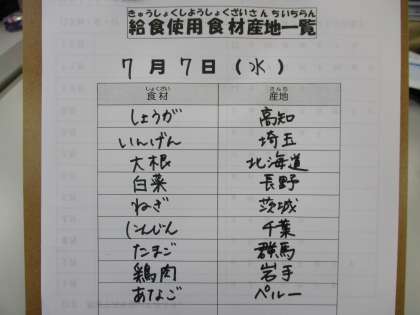 きゅうしょくしようしょくざいさんちいちらん
給食使用食材産地一覧
7月7日(水)
しょくざい さんち
食材 産地
しょうが 高知
いんげん 埼玉
大根 北海道
白菜 長野
ねぎ 茨城
にんじん 千葉
たまご 群馬
鶏肉 岩手
あなご ペルー